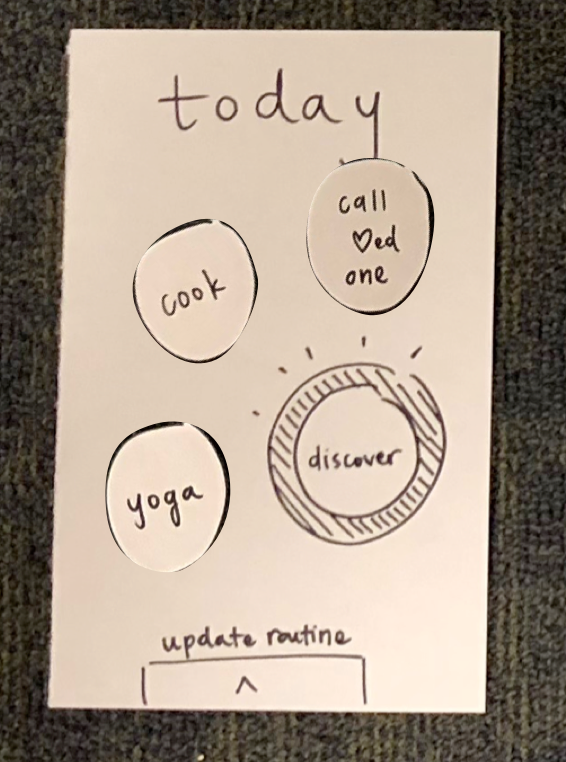 today
call
♡ed
one
cook
discover
yoga
update routine
^